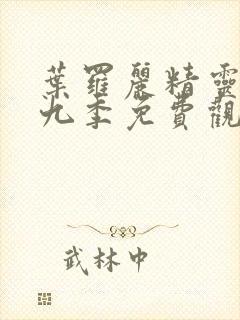 葉羅麗精靈
九季免費觀
武林中